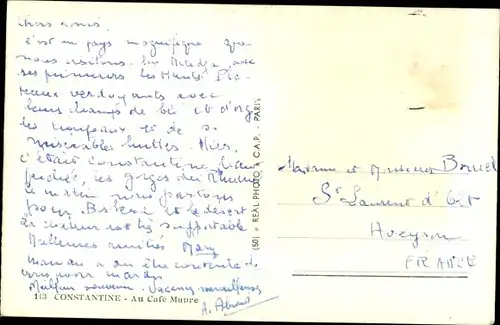 Chers amis.
c'est un pays magnifique que
nous visitons. La Mitidja avec
ses primeurs les Hauts Pla-
teaux verdoyants avec
leurs champs de blé et d'orge
les troupeaux et de
misérables huttes. Hier,
c'était Constantine bien
perchée, les gorges du Rhumel
ce matin nous partons
pour Biskra et le désert
La chaleur est très supportable
Meilleures amitiés Mary
Maman a du être contente de
vous voir mardi
Meilleur souvenir. Vacances merveilleuses
A.
113 CONSTANTINE - Au Café Maure
(50) REAL PHOTO C.A.P. - PARIS
Madame et Monsieur
St Laurent d'Olt
Aveyron
FRANCE